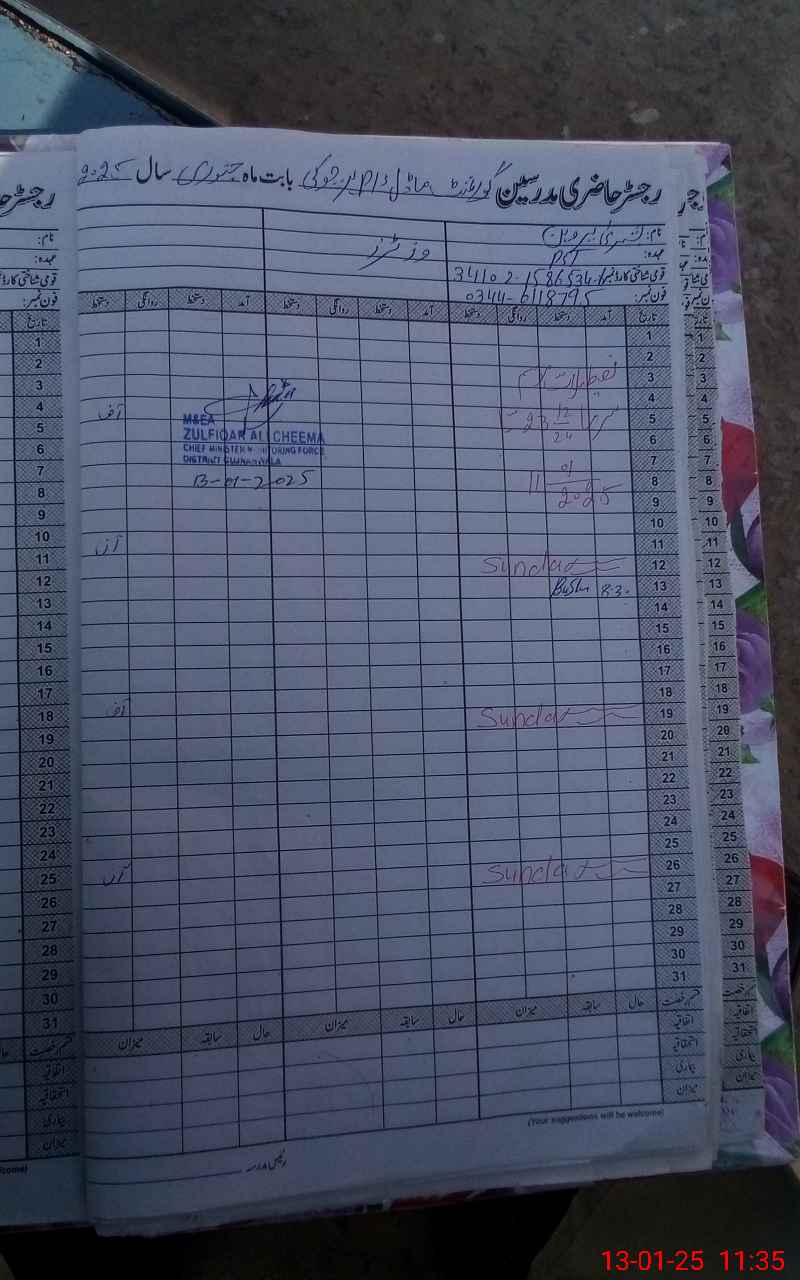 رجسٹر حاضری مدرسین گورنمنٹ ماڈل بابت ماہ جنوری سال 2025
نام:
عہدہ: PST
قومی شناختی کارڈ نمبر: 34102-1586534-
فون نمبر: 0344-6118795
وزٹرز
تاریخ آمد دستخط روانگی دستخط آمد دستخط روانگی دستخط آمد دستخط روانگی دستخط
1
2
3 تعطیلات
4
5 23 12/24
6
7
8 11 01/2025
9
10
11
12 Sunday
13 8:30
14
15
16
17
18
19 Sunday
20
21
22
23
24
25
26 Sunday
27
28
29
30
31
M&EA
ZULFIQAR ALI CHEEMA
CHIEF MINISTER MONITORING FORCE
DISTRICT GUJRANWALA
13-01-2025
آف
آف
آف
آف
حال سابقہ میزان حال سابقہ میزان حال سابقہ میزان
اتفاقیہ
استحقاقیہ
بیماری
میزان
(Your suggestions will be welcome)
رئیس مدرسہ
13-01-25 11:35